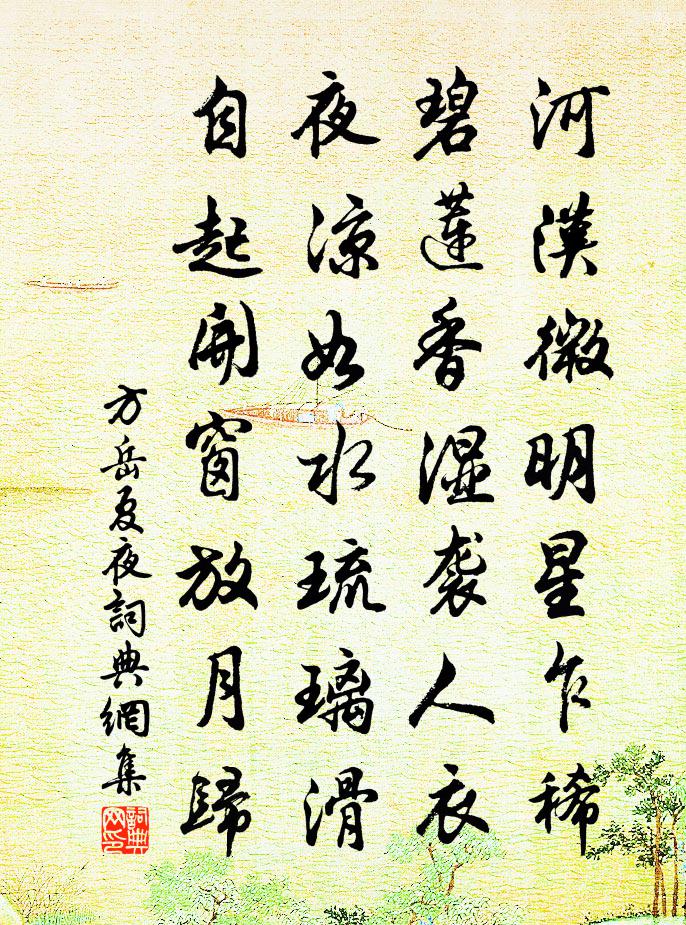 河漢微明星乍稀
碧蓮香濕袭人衣
夜涼如水琉璃滑
自起開窗放月歸
方岳夏夜詞典網集
詞典网印